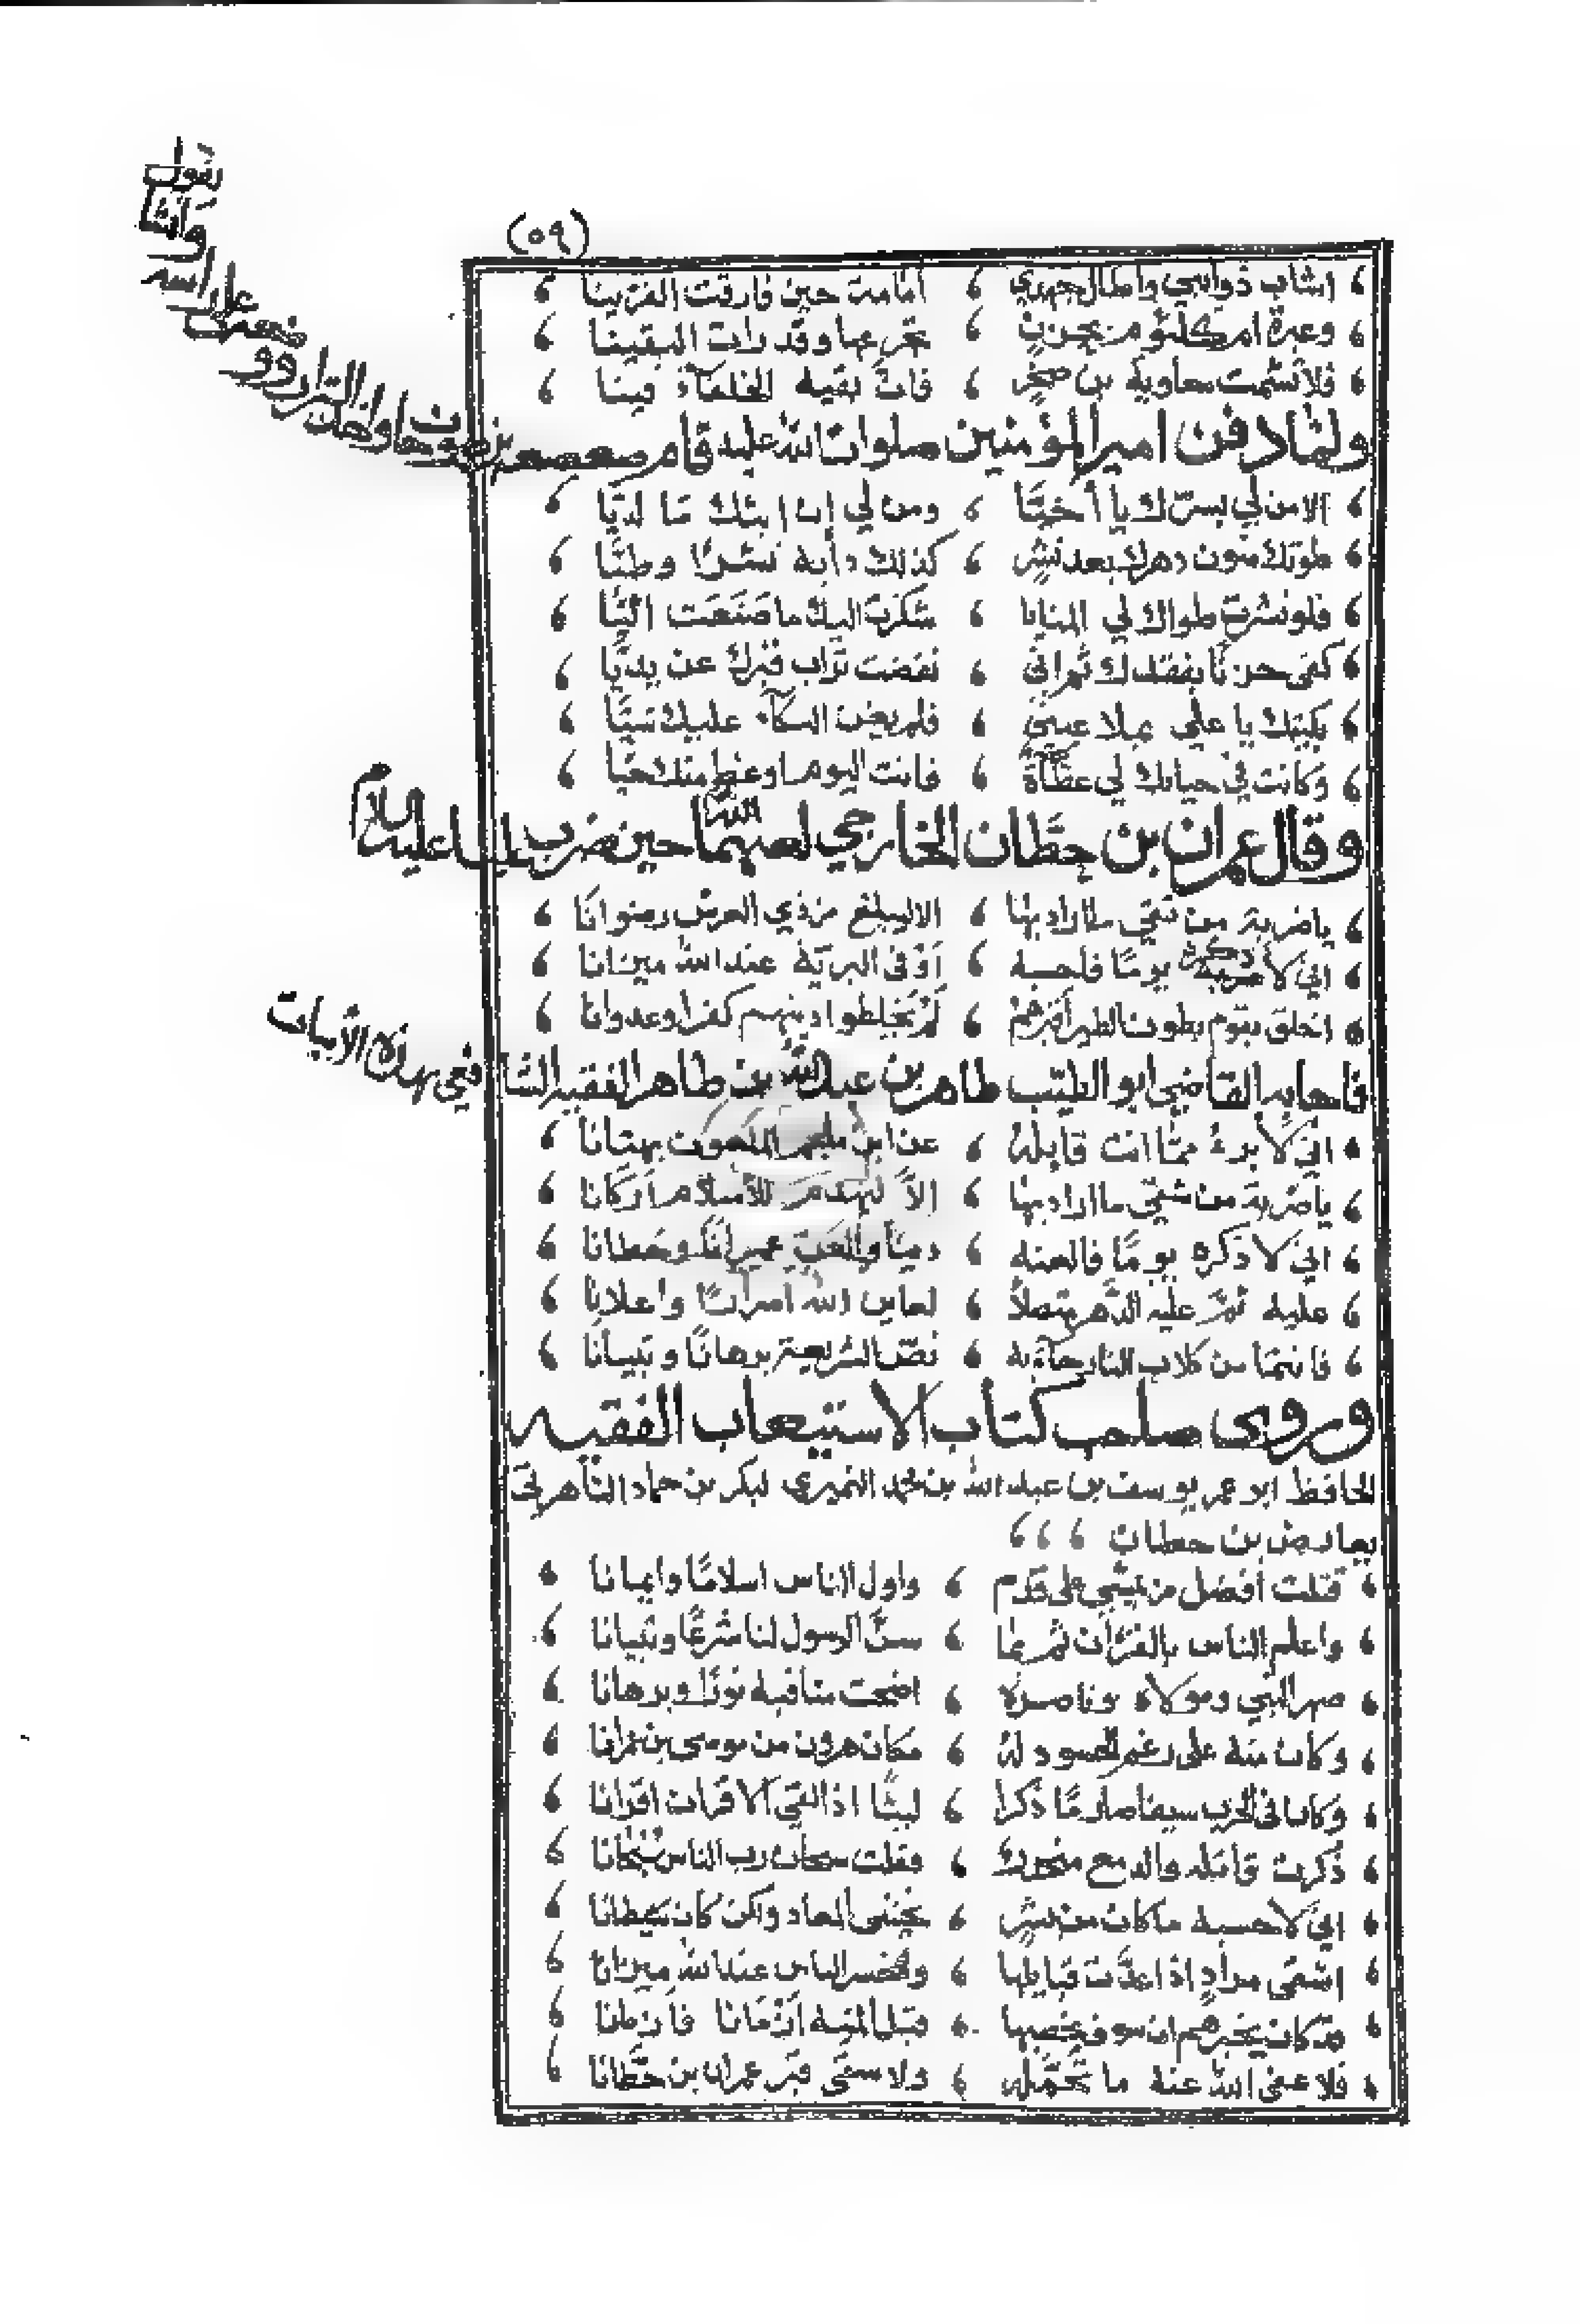 (٥٩)
اشاب ذوابتي واطال جهدي ، امامة حين فارقت القرينا
وعبرة ام كلثوم بحزن ، تجرعها وقد رات اليقينا
فلا تشمت معاوية بن صخر ، فان بقية الخلفآء فينا
ولما دفن امير المؤمنين صلوات الله عليه قام صعصعه بن صوحان واخذ التراب ووضعه على راسه وانشا يقول
الا من لي بسرّك يا اخيّا ، ومن لي ان ابثك ما لديّا
طوتك منون دهرك بعد نشرٍ ، كذلك دأبه نشرًا وطيّا
فلو نشرت طواك لي المنايا ، شكرت اليك ما صنعت اليّا
كفى حزنًا بفقدك ثم اني ، نفضت تراب قبرك عن يديّا
بكيتك يا علي بملا عيني ، فلم يغن البكآء عليك شيّا
وكانت في حياتك لي عظآة ، فانت اليوم اوعظ منك حيّا
وقال عمران بن حطّان الخارجي لعنهما الله حين ضرب عليا عليه السلام
يا ضربة من تقي ما اراد بها ، الا ليبلغ من ذي العرش رضوانا
اني لأذكره يومًا فاحسبه ، اوفى البريّة عند الله ميزانا
اخلق بقوم بطون الطير اقبرهم ، لم يخلطوا دينهم كفرا وعدوانا
فاجابه القاضي ابو الطيّب طاهر بن عبد الله بن طاهر الفقيه الشافعي بهذه الأبيات
اني لأبرء مما انت قايله ، عن ابن ملجم الملعون بهتانا
يا ضربة من شقي ما اراد بها ، الاّ ليهدم للأسلام اركانا
اني لاذكره يومًا فالعنه ، دينا والعن عمرانًا وحطانا
عليه ثمّ عليه الدّهر متصلاً ، لعاين الله اسرارًا واعلانا
فانتما من كلاب النار جآء به ، نصّ الشريعة برهانًا وتبيانا
وروى صاحب كتاب الاستيعاب الفقيه
الحافظ ابو عمر يوسف بن عبد الله بن محمد النميري لبكر بن حماد التاهرتي
يعارض بن حطان ، ، ،
قتلت أفضل من يمشي على قدم ، واول الناس اسلامًا وايمانا
واعلم الناس بالقرآن ثم بما ، سنّ الرسول لنا شرعًا وتبيانا
صهر النبي ومولاه وناصره ، اضحت مناقبه نورًا وبرهانا
وكان منه على رغم الحسود له ، مكان هرون من موسى بن عمرانا
وكان في الحرب سيفا صارمًا ذكرا ، ليثًا اذا لقي الاقران اقرانا
ذكرت قاتله والدمع منحدر ، فقلت سبحان رب الناس سبحانا
اني لاحسبه ما كان من بشر ، يخشى المعاد ولكن كان شيطانا
اشقى مرادٍ اذا عدّت قبايلها ، واخسر الناس عند الله ميزانا
قد كان يخبرهم ان سوف يخضبها ، قبل المنيه ازمانا فازمانا
فلا عفى الله عنه ما تحمّله ، ولا سقى قبر عمران بن حطّانا